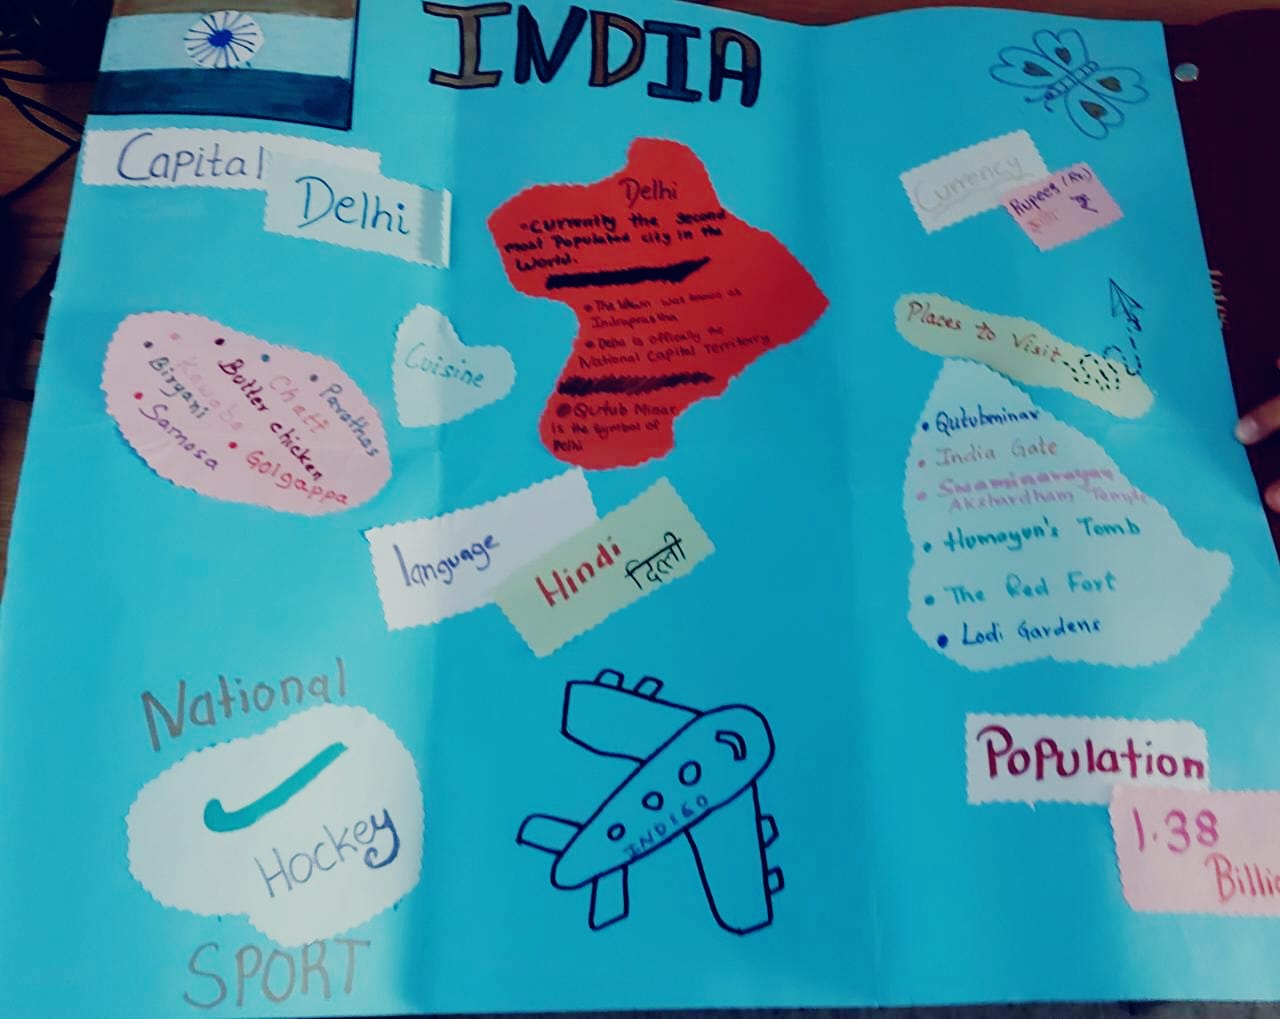 INDIA
Capital
Delhi
Currency
Rupees (Rs.)
₹
Delhi
Currently the Second
most Populated city in the
World.
The town was known as
Indraprastha
Delhi is officially the
National Capital Territory
Qutub Minar
is the symbol of
Delhi
Cuisine
Kawabs
Butter chicken
Chatt
Parathas
Biryani
Samosa
Golgappa
Places to Visit
Qutubminar
India Gate
Swaminarayan
Akshardham Temple
Humayun's Tomb
The Red Fort
Lodi Gardens
language
Hindi
दिल्ली
National
Hockey
SPORT
INDIGO
Population
1.38